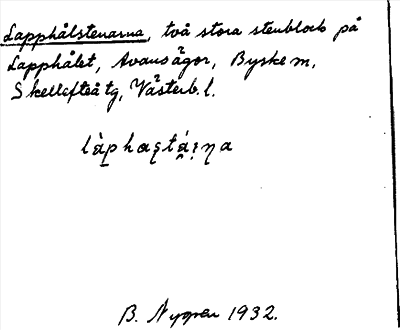 Lapphålstenarna, två stora stenblock på
Lapphålet, Avans ägor, Byske sn,
Skellefteå tg, Västerb. l.
B. Nygren 1932.